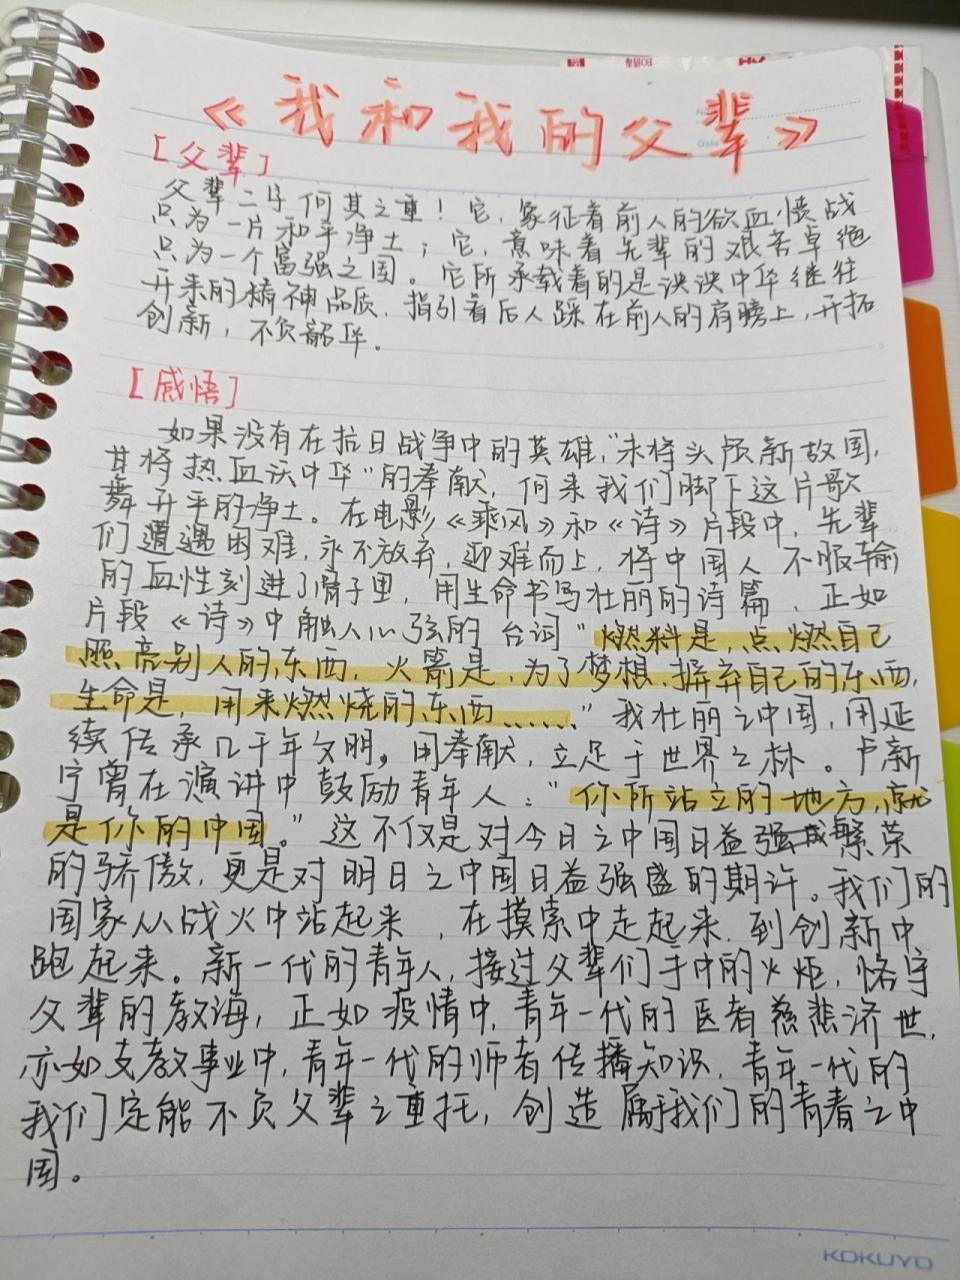 《我和我的父辈》
[父辈]
父辈二字何其之重！它，象征着前人的欲血愤战
只为一片和平净土；它，意味着先辈的艰苦卓绝
只为一个富强之国。它所承载着的是泱泱中华继往
开来的精神品质，指引着后人踩在前人的肩膀上，开拓
创新，不负韶华。
[感悟]
如果没有在抗日战争中的英雄，"未将头颅新故国，
甘将热血沃中华"的奉献，何来我们脚下这片歌
舞升平的净土。在电影《乘风》和《诗》片段中，先辈
们遭遇困难，永不放弃，迎难而上，将中国人不服输
的血性刻进了骨子里，用生命书写壮丽的诗篇、正如
片段《诗》中触人心弦的台词"燃料是，点燃自己
照亮别人的东西，火箭是，为了梦想，摒弃自己的东西，
生命是，用来燃烧的东西……"我壮丽之中国，用延
续传承几千年文明，用奉献，立足于世界之林。卢新
宁曾在演讲中鼓励青年人："你所站立的地方，就
是你的中国。"这不仅是对今日之中国日益强繁荣
的骄傲，更是对明日之中国日益强盛的期许。我们的
国家从战火中站起来，在摸索中走起来，到创新中
跑起来。新一代的青年人，接过父辈们手中的火炬，恪守
父辈的教海，正如疫情中，青年一代的医者慈悲济世，
亦如支教事业中，青年一代的师者传播知识，青年一代的
我们定能不负父辈之重托，创造属于我们的青春之中
国。
KOKUYO